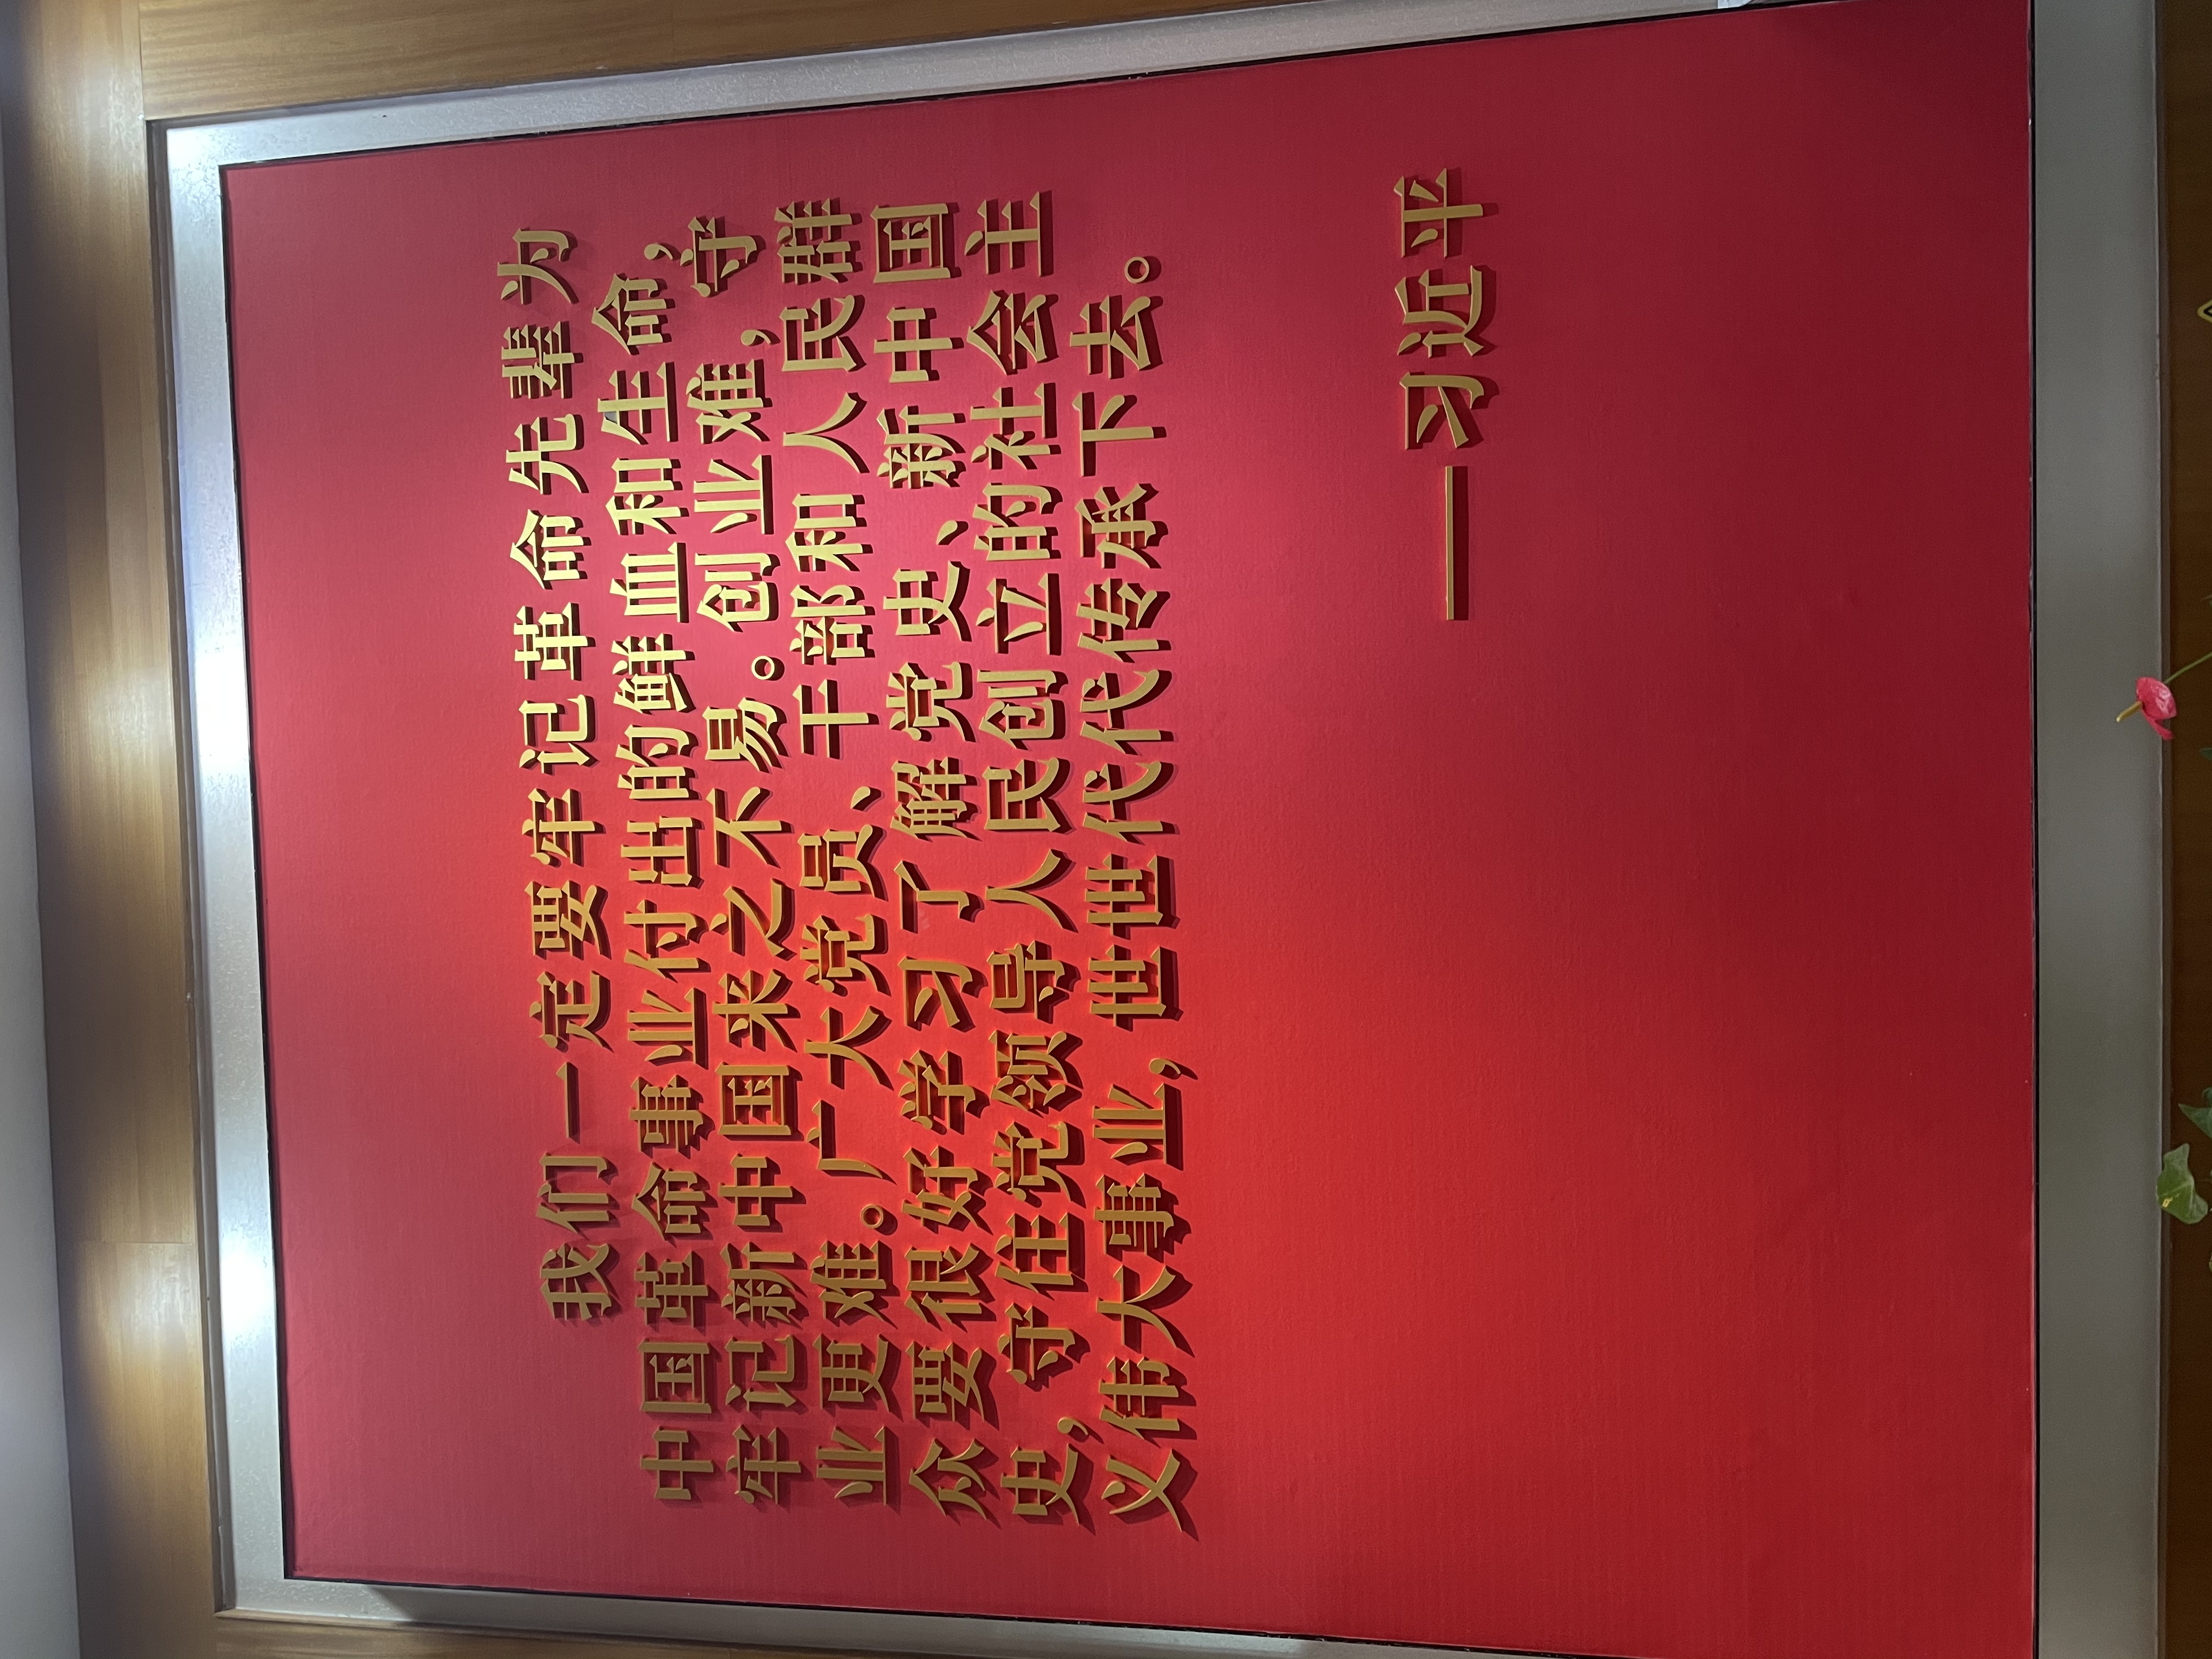 我们一定要牢记革命先辈为
中国革命事业付出的鲜血和生命，
牢记新中国来之不易。创业难，守
业更难。广大党员、干部和人民群
众要很好学习了解党史、新中国
史，守住党领导人民创立的社会主
义伟大事业，世世代代传承下去。
——习近平